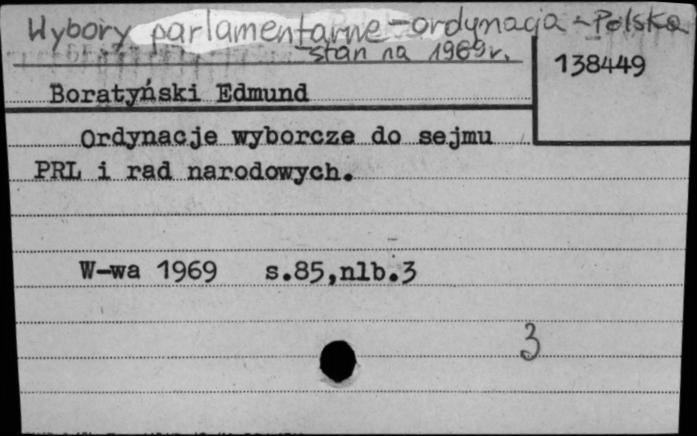 Wybory parlamentarne - ordynacja - Polska
stan na 1969 r.
138449
Boratyński Edmund
Ordynacje wyborcze do sejmu
PRL i rad narodowych.
W-wa 1969 s.85,nlb.3
3